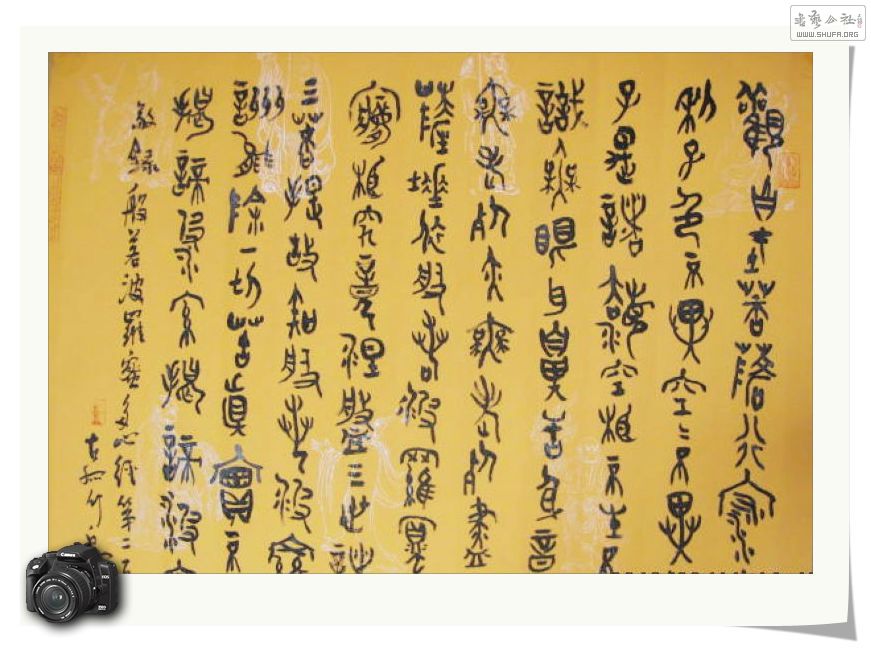 觀自在菩薩行深
利子色不異空〻不異
子是諸法空相不生
識無眼耳鼻舌身意
無老死亦無老死盡
薩埵依般若波羅蜜
夢想究竟涅槃三世諸
三菩提故知般若波
能除一切苦真實不
揭諦波羅揭諦波
敬錄般若波羅蜜多心經第二
古孤竹
書藝公社
WWW.SHUFA.ORG
Canon
EOS